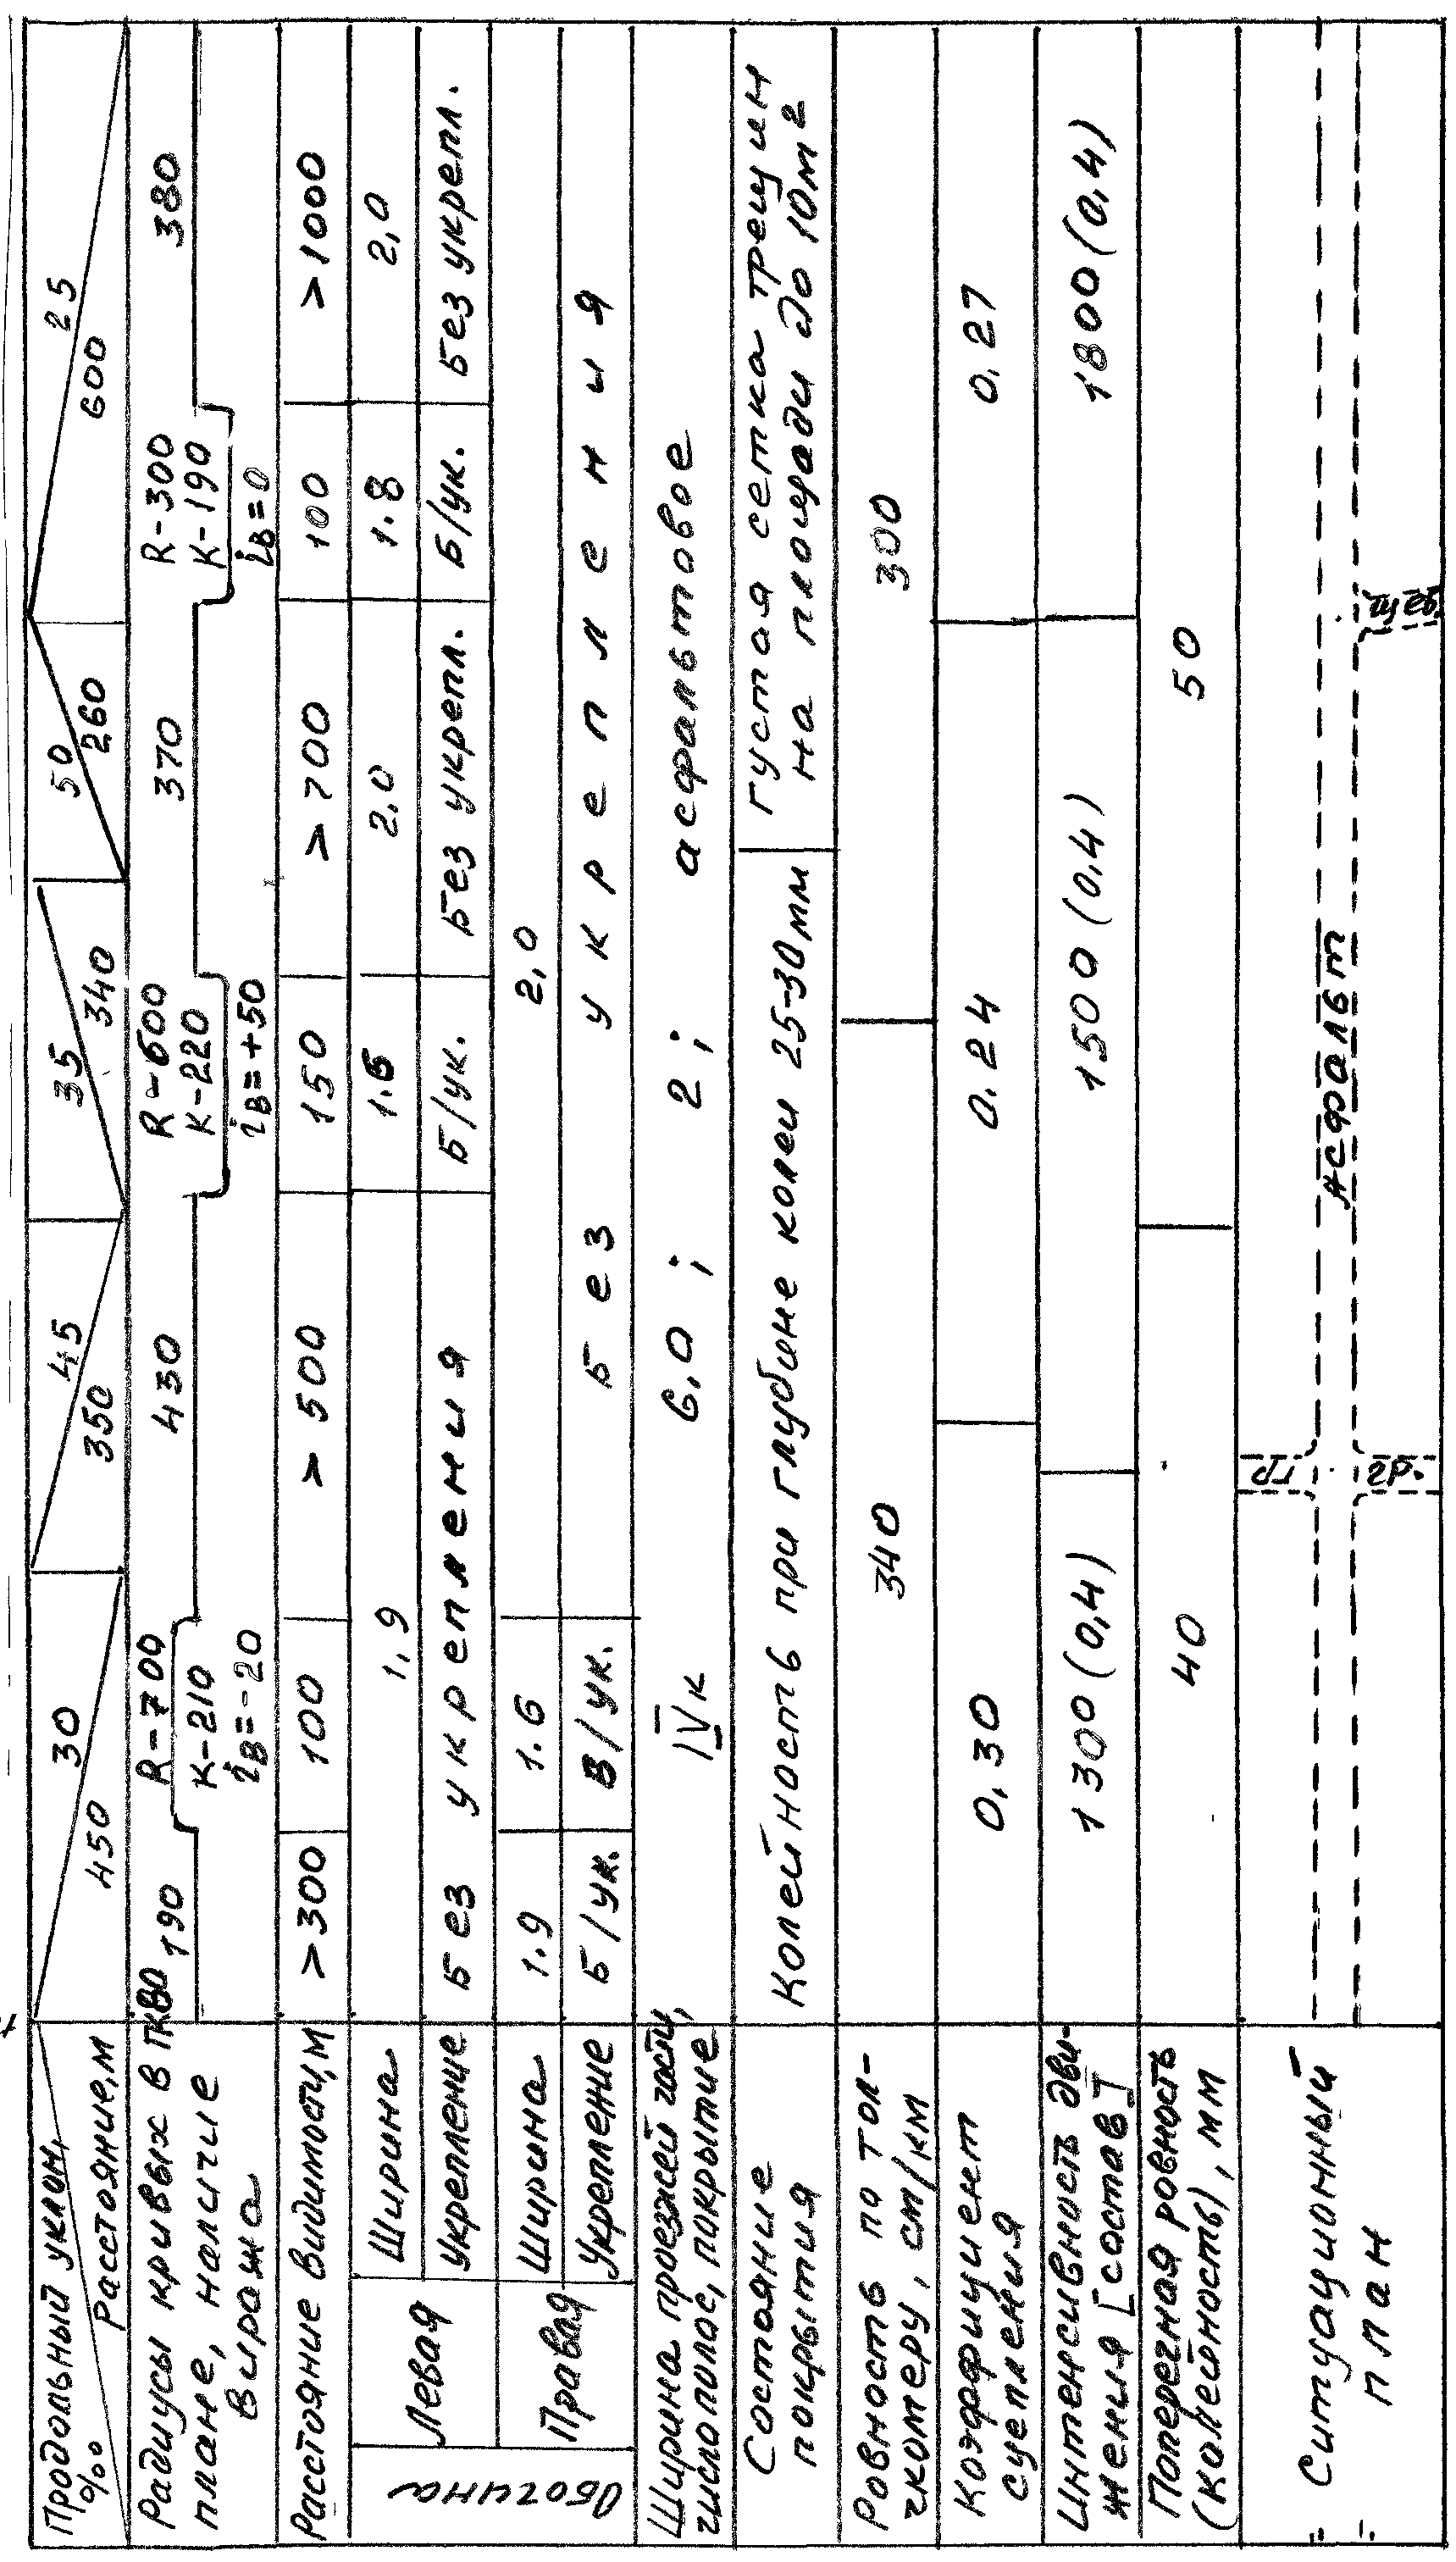 Продольный уклон, ‰
Расстояние, м
30
450
45
350
35
340
50
260
25
600
Радиусы кривых в плане, наличие виража
ПК80
190
R-700
К-210
iв=-20
430
R-600
К-220
iв=+50
370
R-300
К-190
iв=0
380
Расстояние видимости, м
>300
100
>500
150
>700
100
>1000
Обочина
Левая
Ширина
1,9
1.6
2,0
1.8
2,0
Укрепление
Без укрепления
Б/ук.
Без укрепл.
Б/ук.
Без укрепл.
Правая
Ширина
1.9
1.6
2,0
Укрепление
Б/ук.
В/ук.
Без укрепления
Ширина проезжей части,
число полос, покрытие
IVк
6,0; 2; асфальтовое
Состояние
покрытия
Колейность при глубине колеи 25-30мм
Густая сетка трещин
на площади до 10м2
Ровность по тол-
чкомеру, см/км
340
300
Коэффициент
сцепления
0,30
0.24
0,27
Интенсивность дви-
жения [состав]
1300(0,4)
1500(0,4)
1800(0,4)
Поперечная ровность
(колейность), мм
40
50
Ситуационный
план
гр.
гр.
Асфальт
щеб.